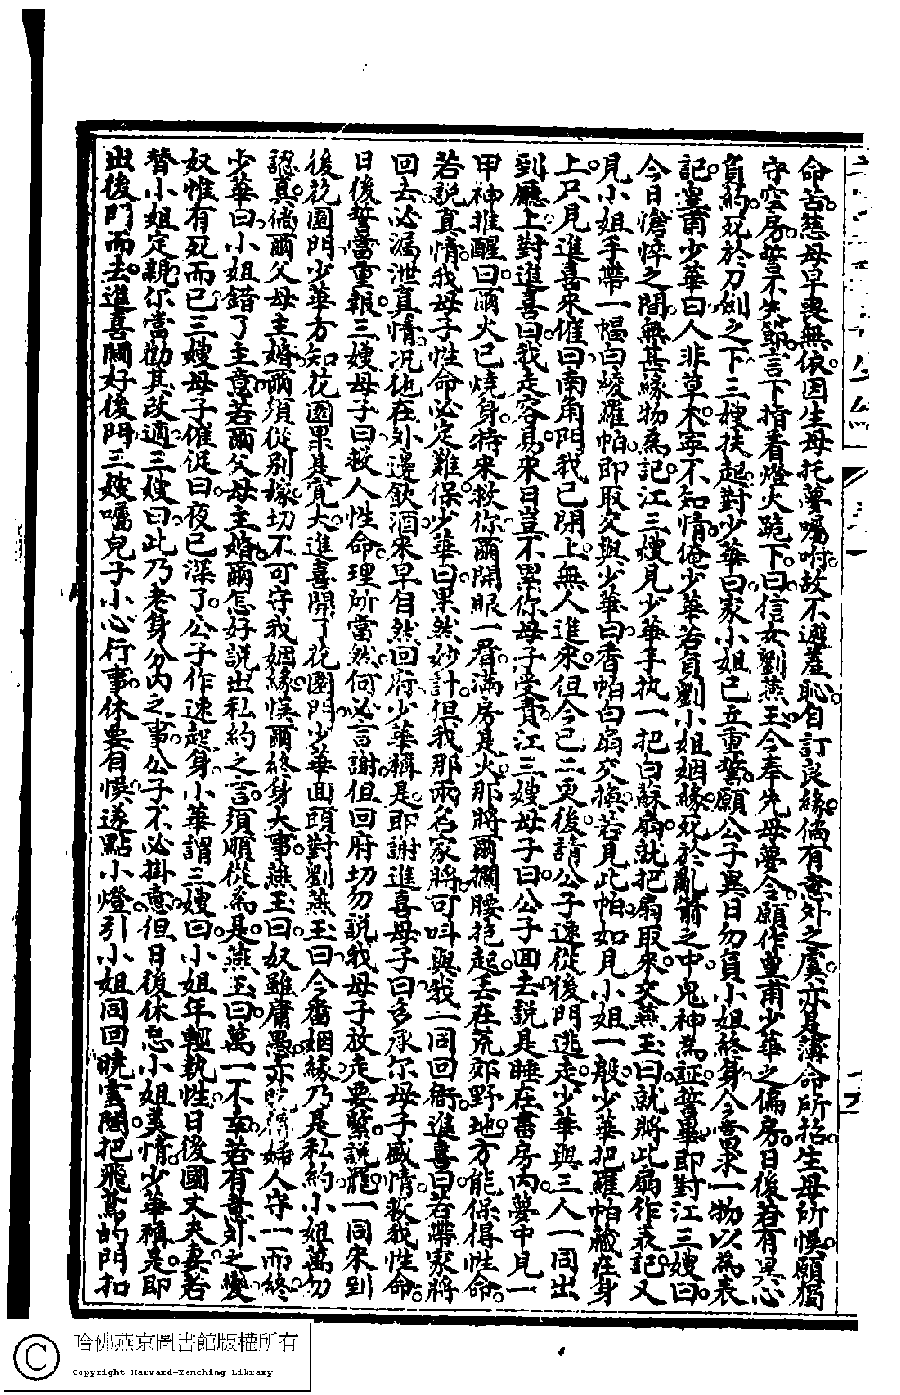 命苦慈母早喪無依因生母托夢囑咐故不避羞恥自訂良緣倘有意外之虞亦是薄命所招生母所悞願獨
守空房誓不失節言下指着燈火跪下曰信女劉燕玉今奉先母夢令願作皇甫少華之偏房日後若有異心
負約死於刀劍之下三嫂扶起對少華曰家小姐已立重誓願公子異日勿負小姐終身今欲求一物以為表
記皇甫少華曰人非草木寧不知情俺少華若負劉小姐姻緣死於亂箭之中鬼神為証誓畢即對江三嫂曰
今日愴悴之間無甚緣物為記江三嫂見少華手执一把白蘇扇就把扇取來交燕玉曰就將此扇作表記又
見小姐手帶一幅白綾羅帕即取交與少華曰香帕白扇交換若見此帕如見小姐一般少華把羅帕藏在身
上只見進喜來催曰南角門我已開上無人進來但今已二更後請公子速從後門逃走少華與三人一同出
到廳上對進喜曰我走容易來日豈不累你母子受責江三嫂母子曰公子回去說是睡在書房內夢中見一
甲神推醒曰爾火已燒身特來救你爾開眼一看滿房是火那將爾攔腰抱起丟在荒郊野地方能保得性命
若說真情我母子性命必定難保少華曰果然妙計但我那兩名家將可叫與我一同回衙進喜曰若帶家將
回去必漏泄真情况他在外邊飲酒來早自然回府少華稱是即謝進喜母子曰多承你母子感情救我性命
日後誓當重報三嫂母子曰救人性命理所當然何必言謝但回府切勿說我母子放走要緊說罷一同來到
後花園門少華方知花園果是寬大進喜開了花園門少華回頭對劉燕玉曰今番姻緣乃是私約小姐萬勿
認真倘爾父母主婚爾須從別嫁切不可守我姻緣悞爾終身大事燕玉曰奴雖庸愚亦曉得婦人守一而終
少華曰小姐錯了主意若爾父母主婚爾怎好說出私約之言須順從為是燕玉曰萬一不幸若有意外之變
奴惟有死而已三嫂母子催促曰夜已深了公子作速起身少華謂三嫂曰小姐年輕執性日後國丈夫妻若
替小姐定親你當勸其改適三嫂曰此乃老身分內之事公子不必掛意但日後休忘小姐美情少華稱是即
出後門而去進喜關好後門三嫂囑兒子小心行事休要有悞遂點小燈引小姐同回曉雲閣把飛鳶的門扣
哈佛燕京圖書館版權所有
Copyright Harvard-Yenching Library